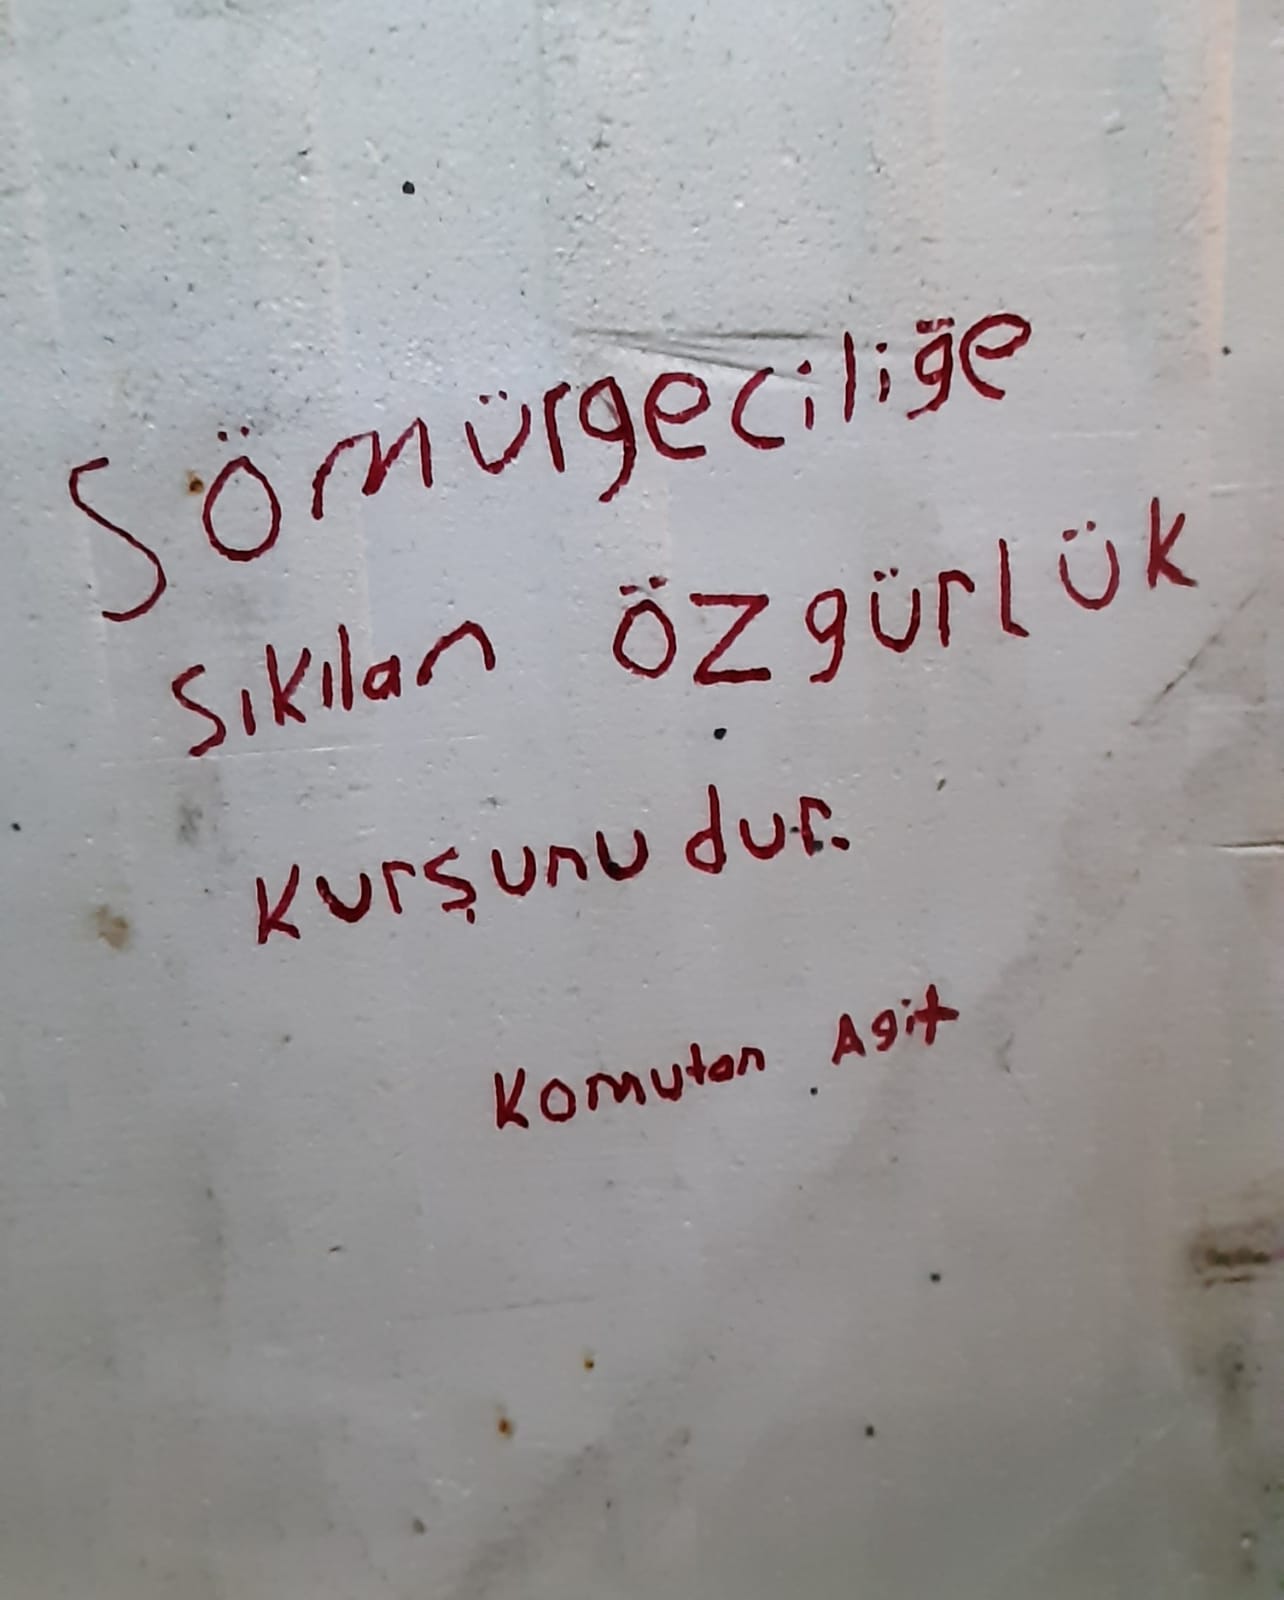 Sömürgeciliğe
sıkılan özgürlük
kurşunudur.
Komutan Agit